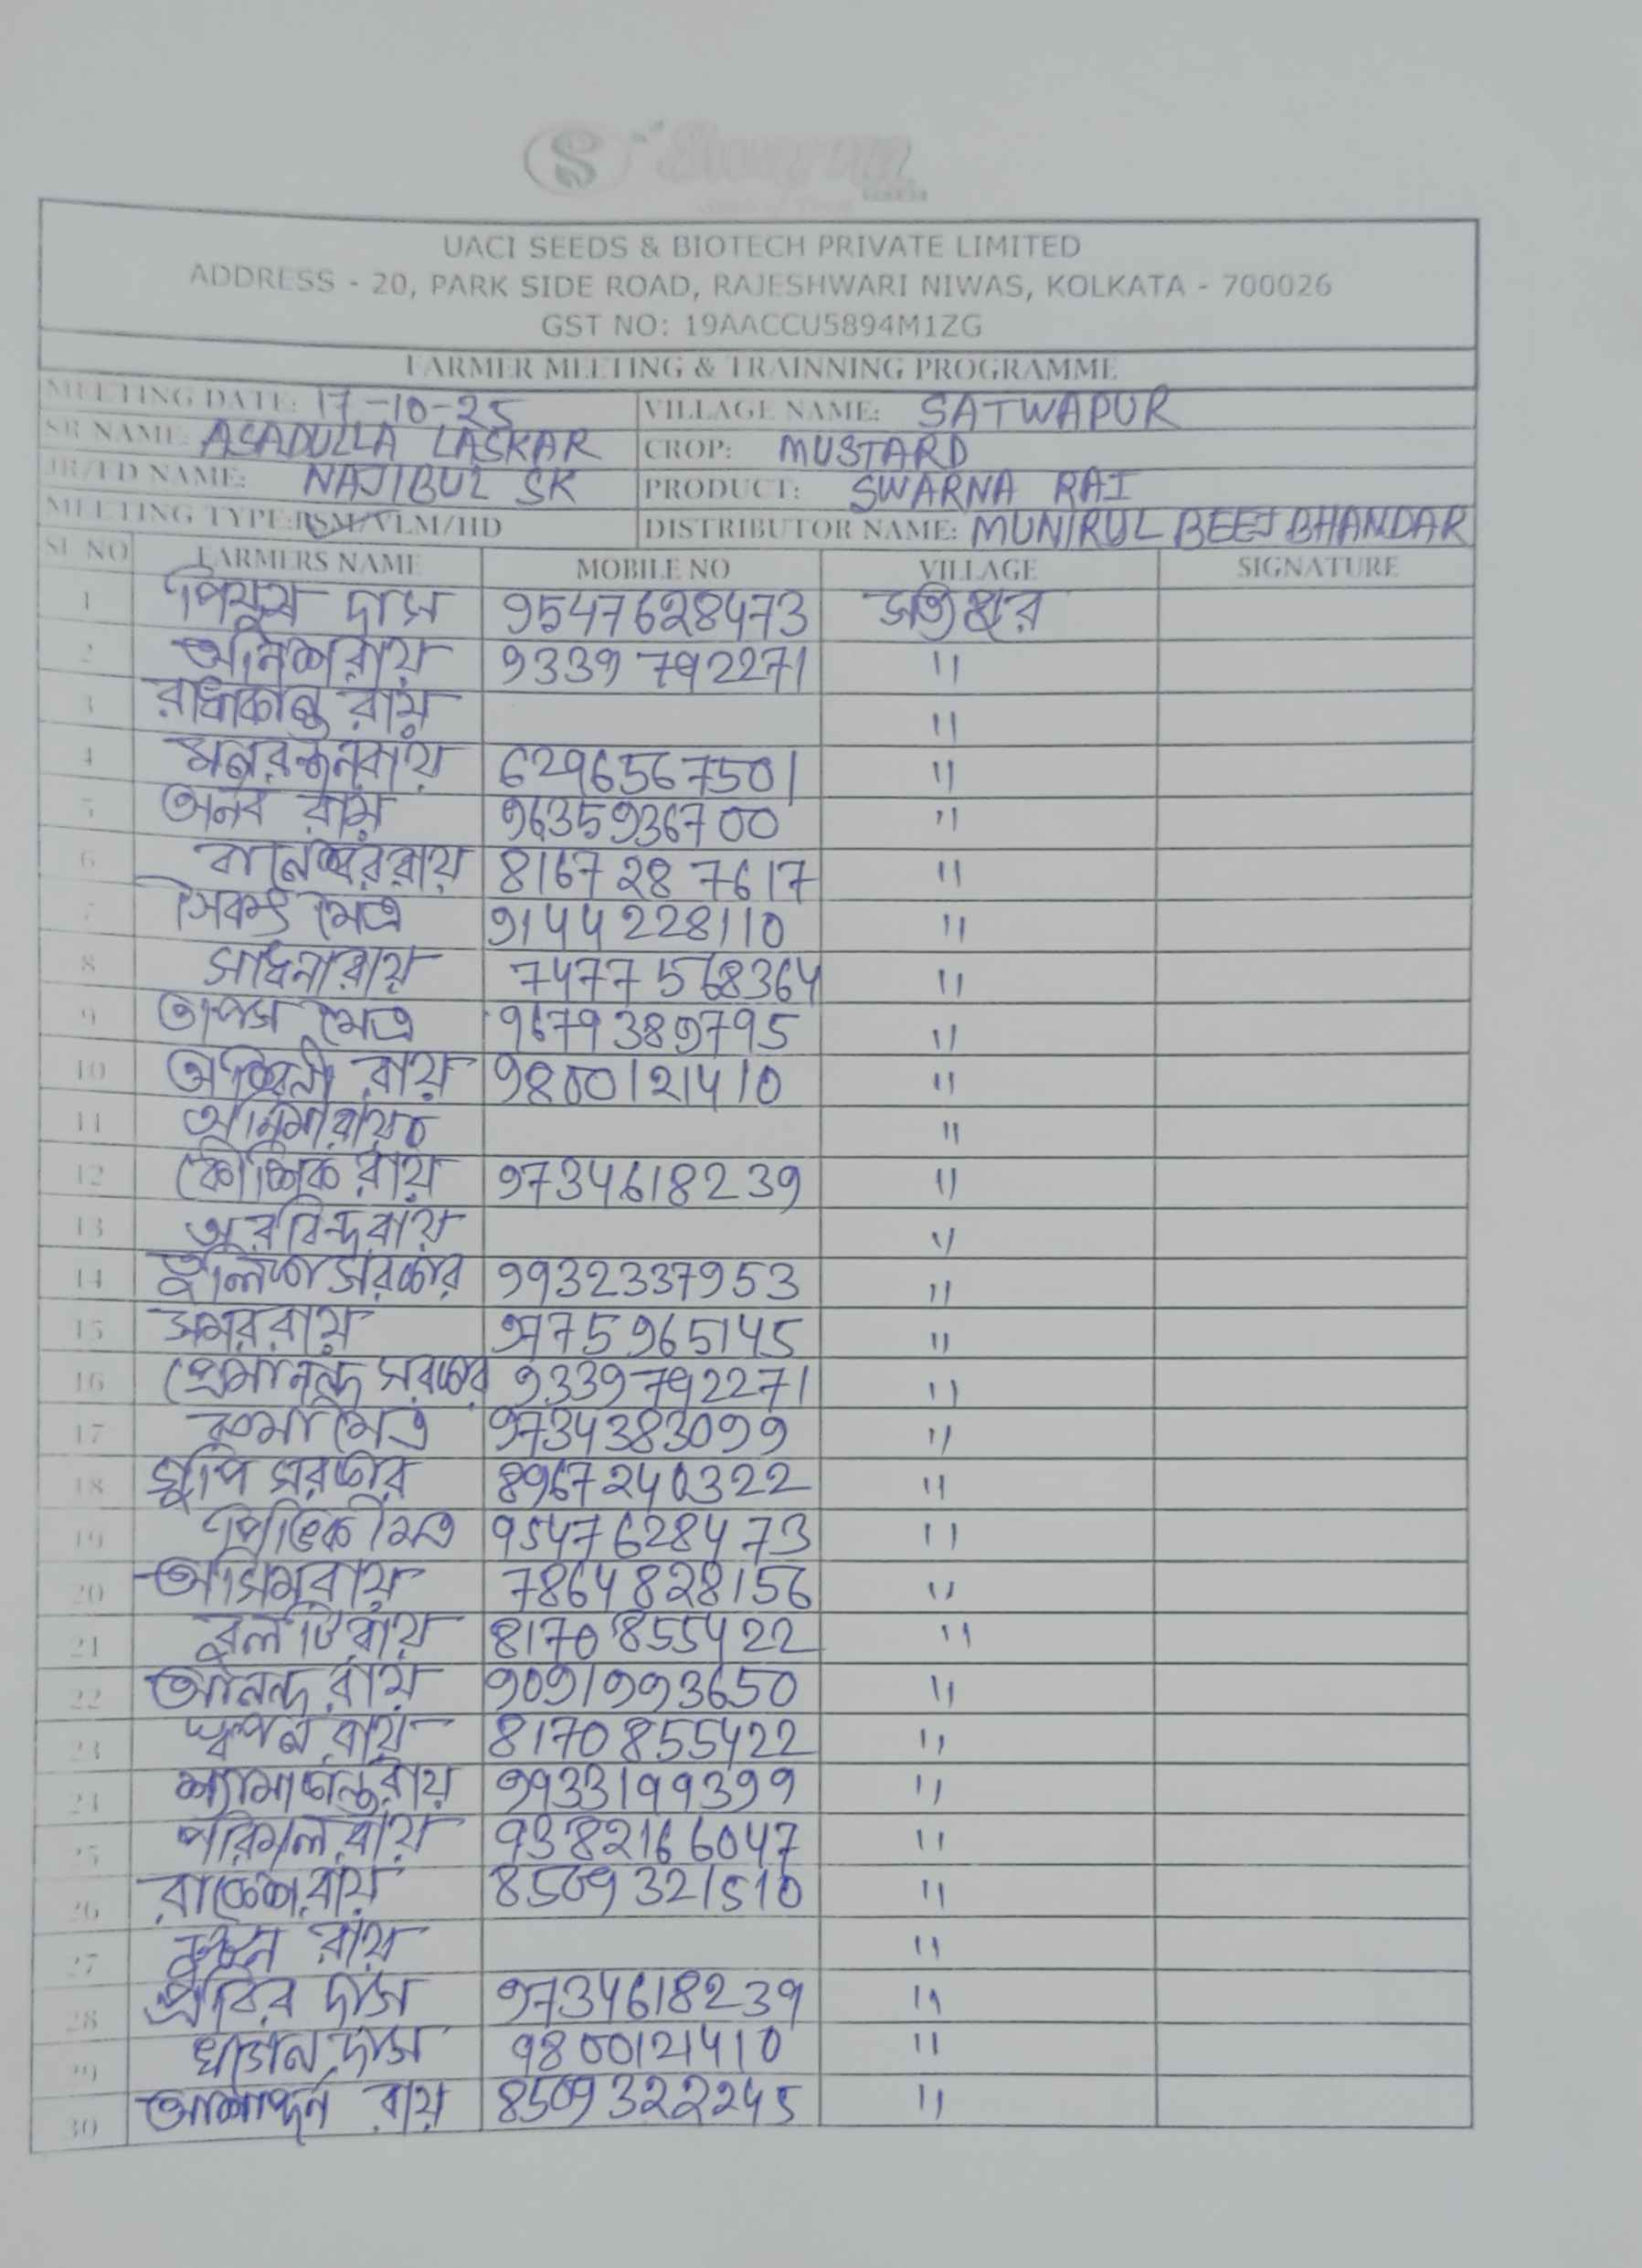 S Swarna
UACI SEEDS & BIOTECH PRIVATE LIMITED
ADDRESS - 20, PARK SIDE ROAD, RAJESHWARI NIWAS, KOLKATA - 700026
GST NO: 19AACCU5894M1ZG
FARMER MEETING & TRAINNING PROGRAMME
MEETING DATE: 17-10-25 VILLAGE NAME: SATWAPUR
SR NAME: ASADULLA LASKAR CROP: MUSTARD
JR/FD NAME: NAJIBUL SK PRODUCT: SWARNA RAI
MEETING TYPE:RSM/VLM/HD DISTRIBUTOR NAME: MUNIRUL BEEJ BHANDAR
SL NO FARMERS NAME MOBILE NO VILLAGE SIGNATURE
1 পিযুষ দাস 9547628473
2 অনিকশরায় 9339792271 "
3 রাধাকান্ত রায় "
4 মনরঞ্জনরায় 6296567501 "
5 অনব রায় 9635936700 "
6 বানেশ্বররায় 8167287617 "
7 মৈত্র 9144228110 "
8 সাধনারায় 7477568364 "
9 তাপস মৈত্র 9679389795 "
10 অশ্বিনী রায় 9800121410 "
11 অনিমারায় "
12 কৌশিক রায় 9734618239 "
13 অরবিন্দরায় "
14 সরকার 9932337953 "
15 অমররায় 9775965145 "
16 প্রেমানন্দ সরকার 9339792271 "
17 রুমা মৈত্র 9734383099 "
18 সরকার 8967240322 "
19 মৈত্র 9547628473 "
20 অসিমরায় 7864828156 "
21 বুলটিরায় 8170855422 "
22 আনন্দ রায় 9091993650 "
23 স্বপন রায় 8170855422 "
24 শ্যামাকান্তরায় 9933199399 "
25 পরিমল রায় 9382166047 "
26 রাকেশ রায় 8509321510 "
27 রায় "
28 প্রবির দাস 9734618239 "
29 দাস 9800121410 "
30 রায় 8509322245 "